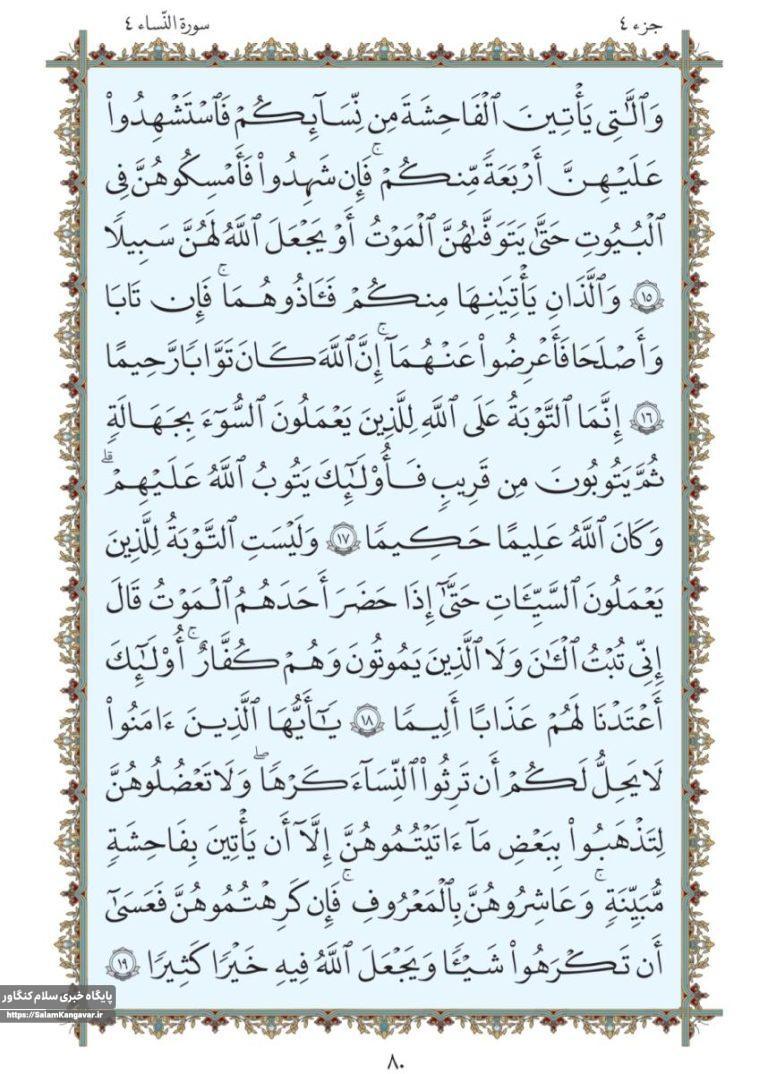 جزء ٤
سورة النّساء ٤
وَٱلَّٰتِى يَأْتِينَ ٱلْفَاحِشَةَ مِن نِّسَآئِكُمْ فَٱسْتَشْهِدُوا۟
عَلَيْهِنَّ أَرْبَعَةً مِّنكُمْ ۚ فَإِن شَهِدُوا۟ فَأَمْسِكُوهُنَّ فِى
ٱلْبُيُوتِ حَتَّىٰ يَتَوَفَّىٰهُنَّ ٱلْمَوْتُ أَوْ يَجْعَلَ ٱللَّهُ لَهُنَّ سَبِيلًا
١٥ وَٱلَّذَانِ يَأْتِيَٰنِهَا مِنكُمْ فَـَٔاذُوهُمَا ۖ فَإِن تَابَا
وَأَصْلَحَا فَأَعْرِضُوا۟ عَنْهُمَآ ۗ إِنَّ ٱللَّهَ كَانَ تَوَّابًا رَّحِيمًا
١٦ إِنَّمَا ٱلتَّوْبَةُ عَلَى ٱللَّهِ لِلَّذِينَ يَعْمَلُونَ ٱلسُّوٓءَ بِجَهَٰلَةٍ
ثُمَّ يَتُوبُونَ مِن قَرِيبٍ فَأُو۟لَٰٓئِكَ يَتُوبُ ٱللَّهُ عَلَيْهِمْ ۗ
وَكَانَ ٱللَّهُ عَلِيمًا حَكِيمًا ١٧ وَلَيْسَتِ ٱلتَّوْبَةُ لِلَّذِينَ
يَعْمَلُونَ ٱلسَّيِّـَٔاتِ حَتَّىٰٓ إِذَا حَضَرَ أَحَدَهُمُ ٱلْمَوْتُ قَالَ
إِنِّى تُبْتُ ٱلْـَٰٔنَ وَلَا ٱلَّذِينَ يَمُوتُونَ وَهُمْ كُفَّارٌ ۚ أُو۟لَٰٓئِكَ
أَعْتَدْنَا لَهُمْ عَذَابًا أَلِيمًا ١٨ يَٰٓأَيُّهَا ٱلَّذِينَ ءَامَنُوا۟
لَا يَحِلُّ لَكُمْ أَن تَرِثُوا۟ ٱلنِّسَآءَ كَرْهًا ۖ وَلَا تَعْضُلُوهُنَّ
لِتَذْهَبُوا۟ بِبَعْضِ مَآ ءَاتَيْتُمُوهُنَّ إِلَّآ أَن يَأْتِينَ بِفَٰحِشَةٍ
مُّبَيِّنَةٍ ۚ وَعَاشِرُوهُنَّ بِٱلْمَعْرُوفِ ۚ فَإِن كَرِهْتُمُوهُنَّ فَعَسَىٰٓ
أَن تَكْرَهُوا۟ شَيْـًٔا وَيَجْعَلَ ٱللَّهُ فِيهِ خَيْرًا كَثِيرًا ١٩
پایگاه خبری سلام کنگاور
https://SalamKangavar.ir
٨٠